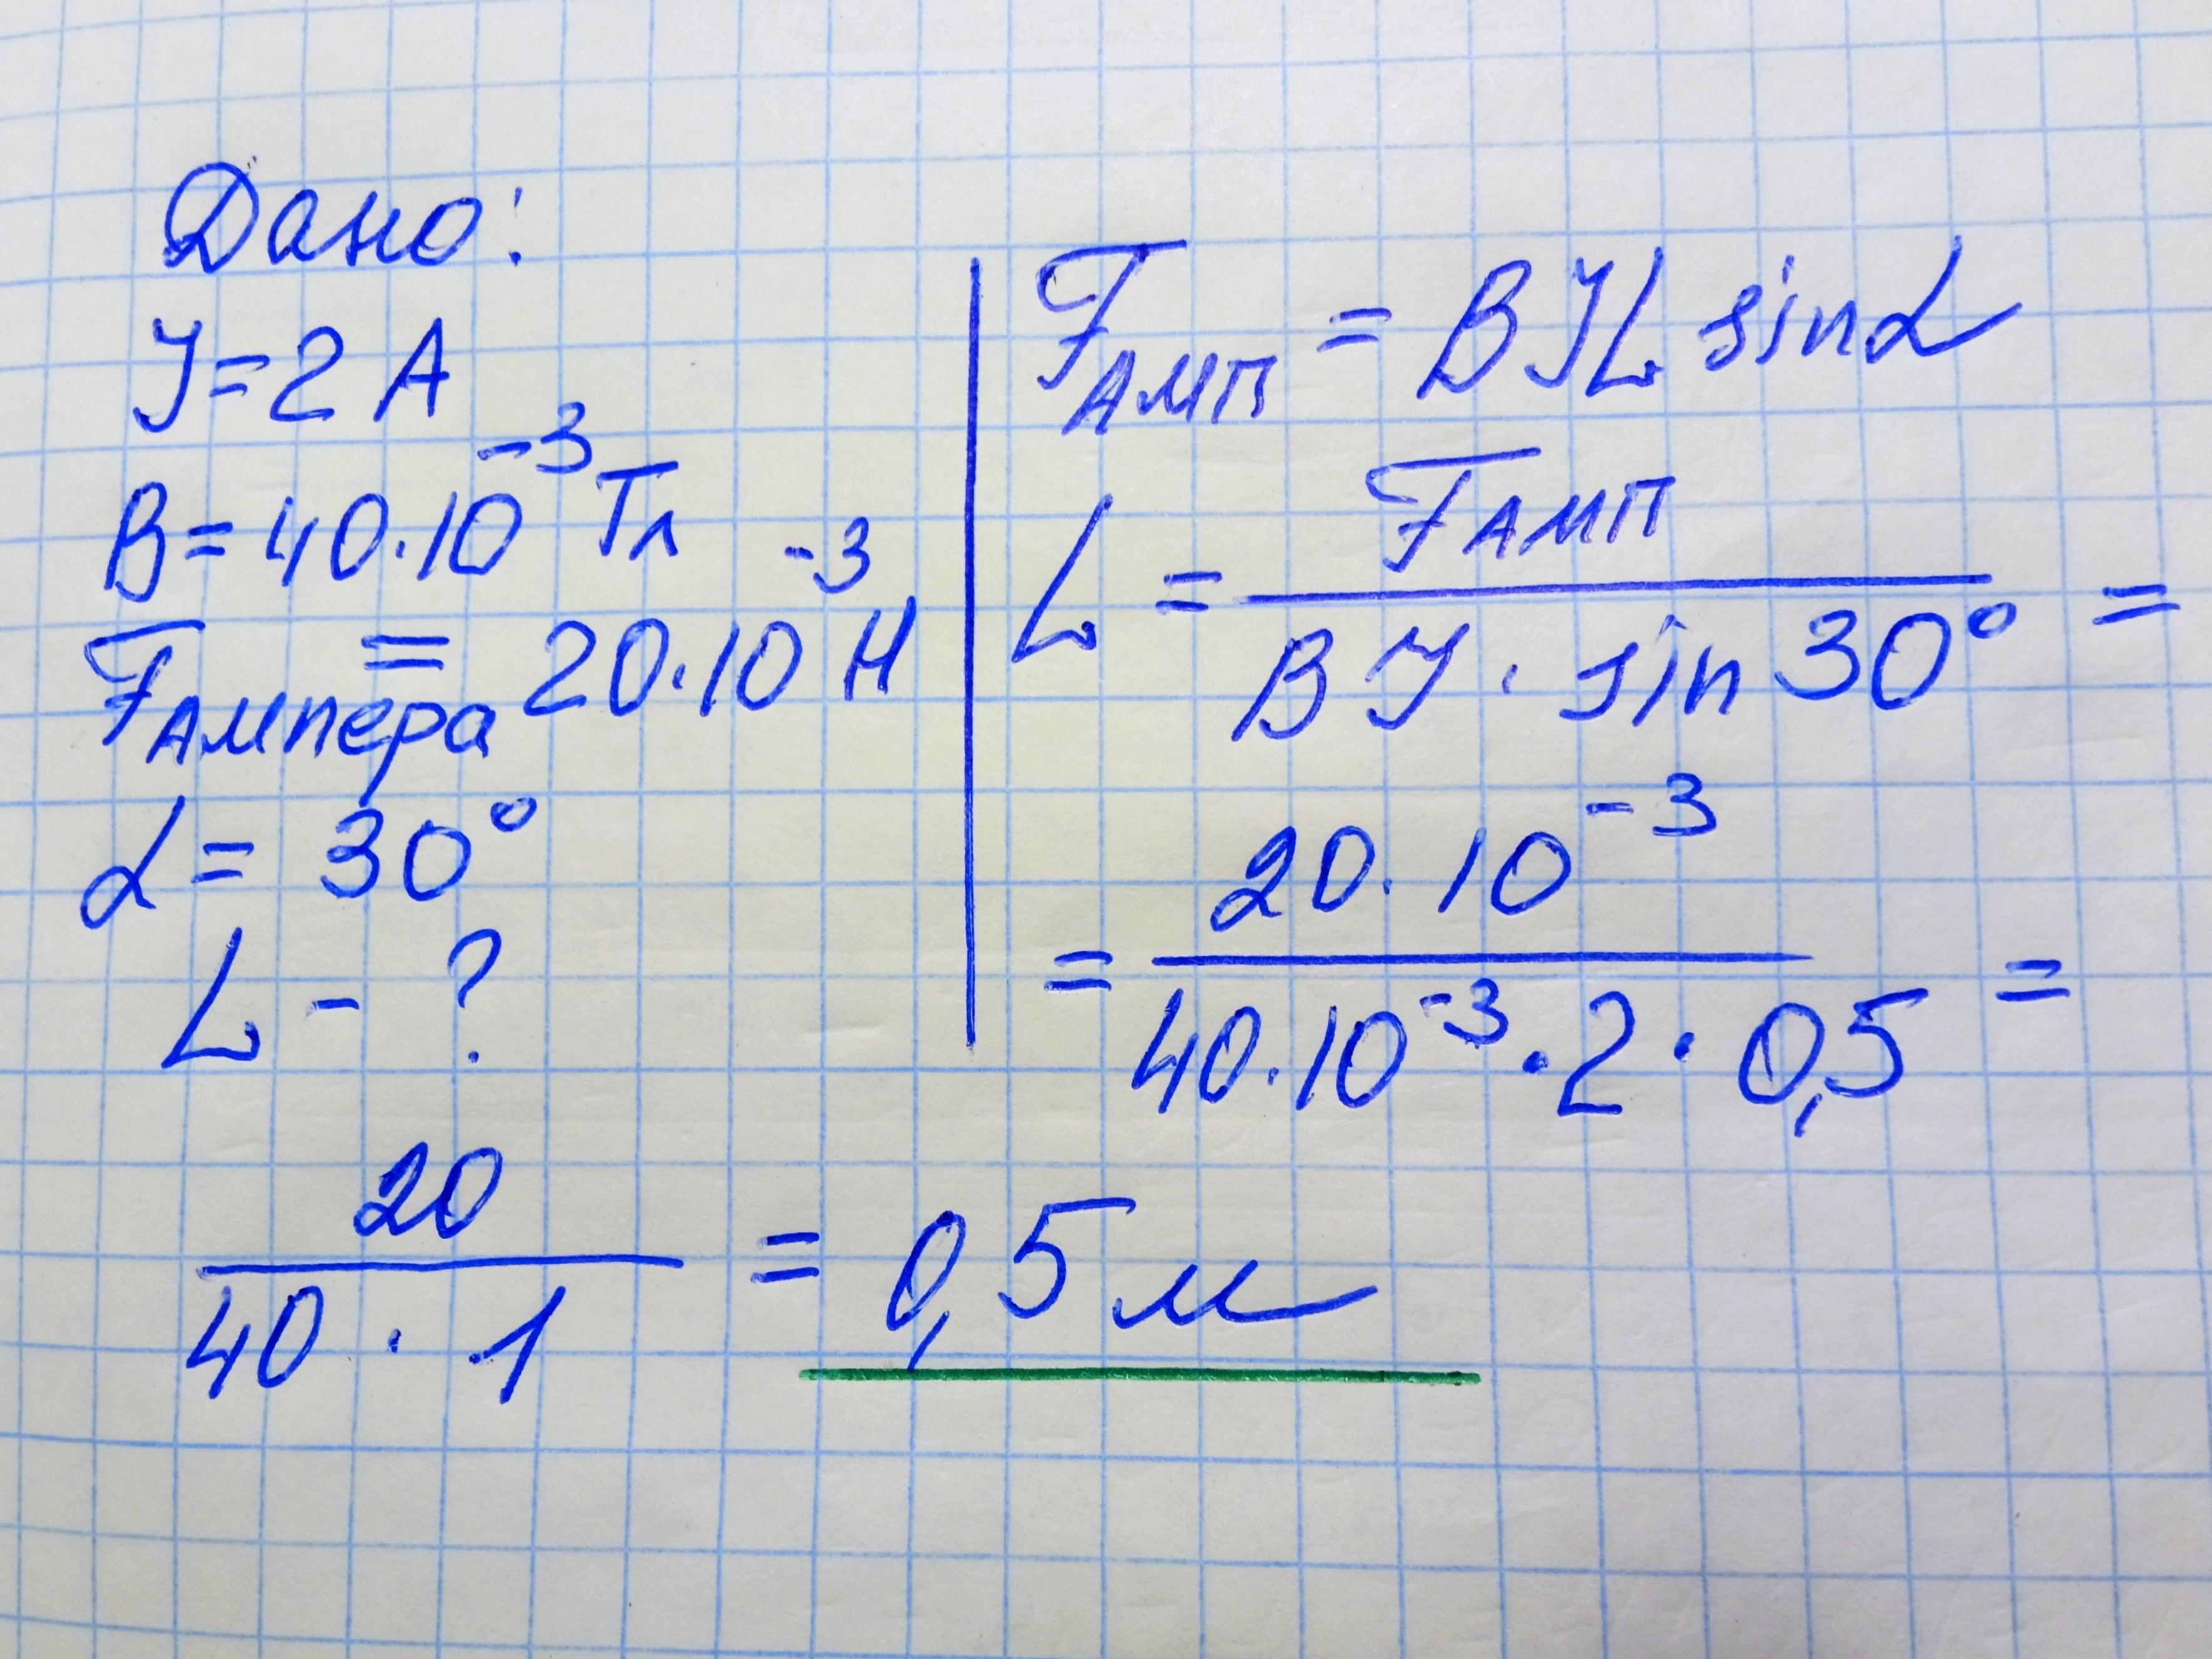 Дано:
J = 2 А
B = 40·10⁻³ Тл
Fампера = 20·10⁻³ Н
α = 30°
L - ?
Fамп = BJL sinα
L = Fамп / BJ · sin 30° =
= 20·10⁻³ / 40·10⁻³ · 2 · 0,5 =
20 / 40 · 1 = 0,5 м